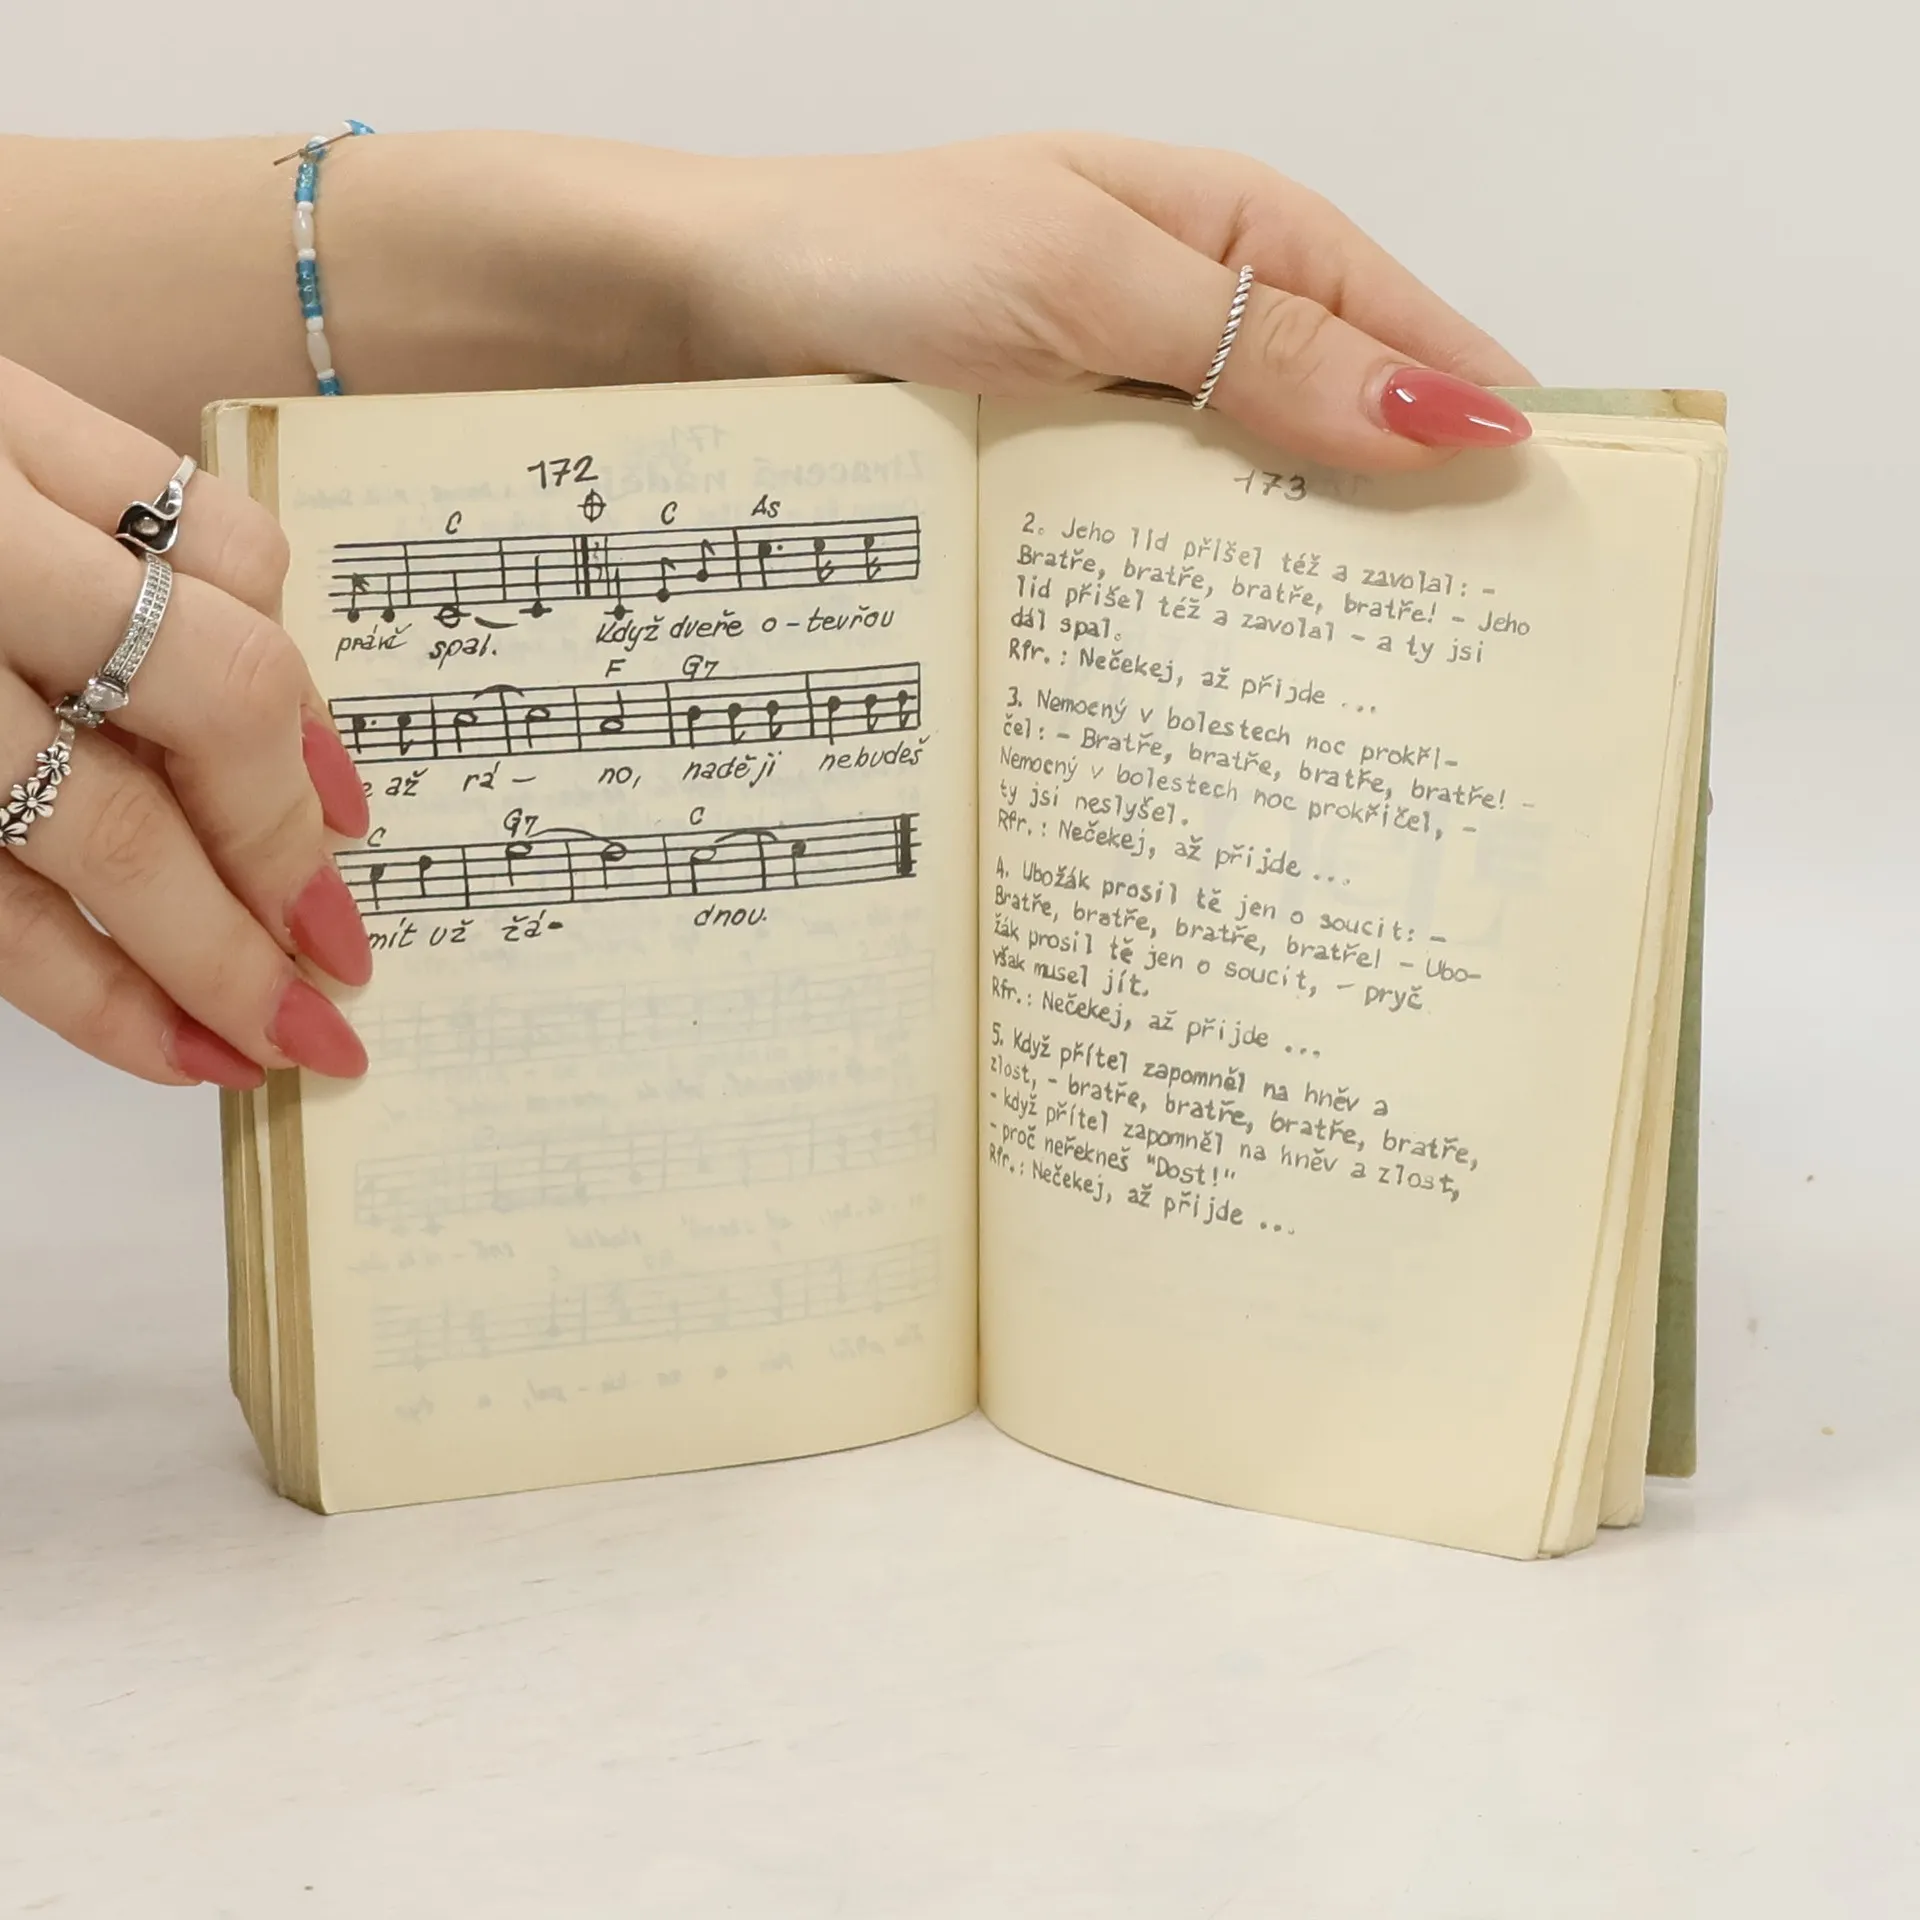 172
C C As
právě spal. Když dveře o-tevřou
F G7
až rá- no, naději nebudeš
C G7 C
mít už žá- dnou.
173
2. Jeho lid přišel též a zavolal: -
Bratře, bratře, bratře, bratře! - Jeho
lid přišel též a zavolal - a ty jsi
dál spal.
Rfr.: Nečekej, až přijde ...
3. Nemocný v bolestech noc prokři-
čel: - Bratře, bratře, bratře, bratře! -
Nemocný v bolestech noc prokřičel, -
ty jsi neslyšel.
Rfr.: Nečekej, až přijde ...
4. Ubožák prosil tě jen o soucit: -
Bratře, bratře, bratře, bratře! - Ubo-
žák prosil tě jen o soucit, - pryč
však musel jít.
Rfr.: Nečekej, až přijde ...
5. Když přítel zapomněl na hněv a
zlost, - bratře, bratře, bratře, bratře,
- když přítel zapomněl na hněv a zlost,
- proč neřekneš "Dost!"
Rfr.: Nečekej, až přijde ...